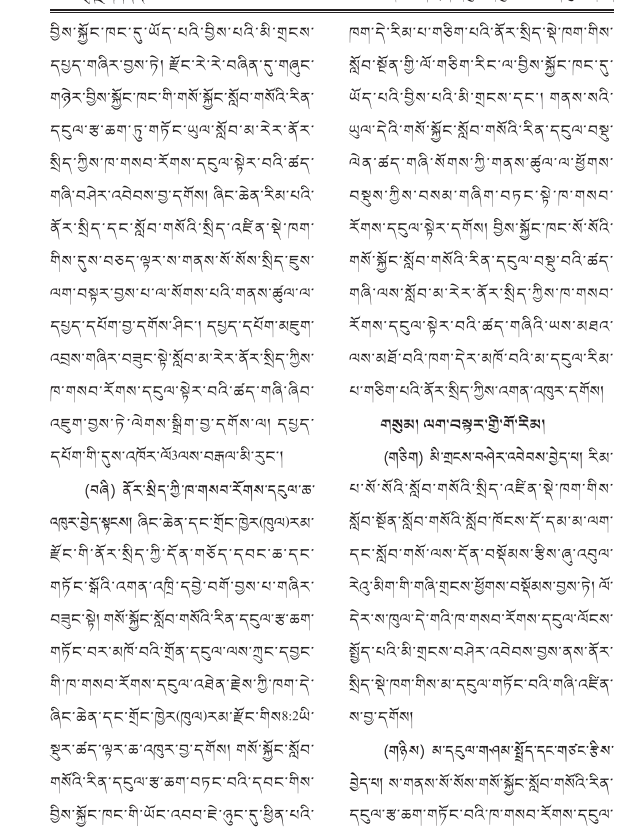 བྱིས་སྐྱོང་ཁང་དུ་ཡོད་པའི་བྱིས་པའི་མི་གྲངས་
དཔྱད་གཞིར་བྱས་ཏེ། རྫོང་རེ་རེ་བཞིན་དུ་གཞུང་
གཉེར་བྱིས་སྐྱོང་ཁང་གི་གསོ་སྐྱོང་སློབ་གསོའི་རིན་
དངུལ་རྩ་ཆག་ཏུ་གཏོང་ཡུལ་སློབ་མ་རེར་ནོར་
སྲིད་ཀྱིས་ཁ་གསབ་རོགས་དངུལ་སྟེར་བའི་ཚད་
གཞི་བཤེར་འབེབས་བྱ་དགོས། ཞིང་ཆེན་རིམ་པའི་
ནོར་སྲིད་དང་སློབ་གསོའི་སྲིད་འཛིན་སྡེ་ཁག་
གིས་དུས་བཅད་ལྟར་ས་གནས་སོ་སོས་སྲིད་ཇུས་
ལག་བསྟར་བྱས་པ་ལ་སོགས་པའི་གནས་ཚུལ་ལ་
དཔྱད་དཔོག་བྱ་དགོས་ཤིང་། དཔྱད་དཔོག་མཇུག་
འབྲས་གཞིར་བཟུང་སྟེ་སློབ་མ་རེར་ནོར་སྲིད་ཀྱིས་
ཁ་གསབ་རོགས་དངུལ་སྟེར་བའི་ཚད་གཞི་ཞིབ་
འཇུག་བྱས་ཏེ་ལེགས་སྒྲིག་བྱ་དགོས་ལ། དཔྱད་
དཔོག་གི་དུས་འཁོར་ལོ3ལས་བརྒལ་མི་རུང་།
(བཞི) ནོར་སྲིད་ཀྱི་ཁ་གསབ་རོགས་དངུལ་ཆ་
འཁུར་བྱེད་སྟངས། ཞིང་ཆེན་དང་གྲོང་ཁྱེར(ཁུལ)རམ་
རྫོང་གི་ནོར་སྲིད་ཀྱི་དོན་གཅོད་དབང་ཆ་དང་
གཏོང་སྒོའི་འགན་འཁྲི་དབྱེ་བགོ་བྱས་པ་གཞིར་
བཟུང་སྟེ། གསོ་སྐྱོང་སློབ་གསོའི་རིན་དངུལ་རྩ་ཆག་
གཏོང་བར་མཁོ་བའི་གྲོན་དངུལ་ལས་ཀྲུང་དབྱང་
གི་ཁ་གསབ་རོགས་དངུལ་འཐེན་རྗེས་ཀྱི་ཁག་དེ་
ཞིང་ཆེན་དང་གྲོང་ཁྱེར(ཁུལ)རམ་རྫོང་གིས8:2ཡི་
སྡུར་ཚད་ལྟར་ཆ་འཁུར་བྱ་དགོས། གསོ་སྐྱོང་སློབ་
གསོའི་རིན་དངུལ་རྩ་ཆག་བཏང་བའི་དབང་གིས་
བྱིས་སྐྱོང་ཁང་གི་ཡོང་འབབ་ཇེ་ཉུང་དུ་ཕྱིན་པའི་
ཁག་དེ་རིམ་པ་གཅིག་པའི་ནོར་སྲིད་སྡེ་ཁག་གིས་
སློབ་སྔོན་གྱི་ལོ་གཅིག་རིང་ལ་བྱིས་སྐྱོང་ཁང་དུ་
ཡོད་པའི་བྱིས་པའི་མི་གྲངས་དང་། གནས་སའི་
ཡུལ་དེའི་གསོ་སྐྱོང་སློབ་གསོའི་རིན་དངུལ་བསྡུ་
ལེན་ཚད་གཞི་སོགས་ཀྱི་གནས་ཚུལ་ལ་ཕྱོགས་
བསྡུས་ཀྱིས་བསམ་གཞིག་བཏང་སྟེ་ཁ་གསབ་
རོགས་དངུལ་སྟེར་དགོས། བྱིས་སྐྱོང་ཁང་སོ་སོའི་
གསོ་སྐྱོང་སློབ་གསོའི་རིན་དངུལ་བསྡུ་བའི་ཚད་
གཞི་ལས་སློབ་མ་རེར་ནོར་སྲིད་ཀྱིས་ཁ་གསབ་
རོགས་དངུལ་སྟེར་བའི་ཚད་གཞིའི་ཡས་མཐའ་
ལས་མཐོ་བའི་ཁག་དེར་མཁོ་བའི་མ་དངུལ་རིམ་
པ་གཅིག་པའི་ནོར་སྲིད་ཀྱིས་འགན་འཁུར་དགོས།
གསུམ། ལག་བསྟར་གྱི་གོ་རིམ།
(གཅིག) མི་གྲངས་བཤེར་འབེབས་བྱེད་པ། རིམ་
པ་སོ་སོའི་སློབ་གསོའི་སྲིད་འཛིན་སྡེ་ཁག་གིས་
སློབ་སྔོན་སློབ་གསོའི་སློབ་ཁོངས་དོ་དམ་མ་ལག་
དང་སློབ་གསོ་ལས་དོན་བསྡོམས་རྩིས་ཞུ་འབུལ་
རེའུ་མིག་གི་གཞི་གྲངས་ཕྱོགས་བསྡོམས་བྱས་ཏེ། ལོ་
དེར་ས་ཁུལ་དེ་གའི་ཁ་གསབ་རོགས་དངུལ་ལོངས་
སྤྱོད་པའི་མི་གྲངས་བཤེར་འབེབས་བྱས་ནས་ནོར་
སྲིད་སྡེ་ཁག་གིས་མ་དངུལ་གཏོང་བའི་གཞི་འཛིན་
ས་བྱ་དགོས།
(གཉིས) མ་དངུལ་གཤམ་སྤྲོད་དང་གཙང་རྩིས་
བྱེད་པ། ས་གནས་སོ་སོས་གསོ་སྐྱོང་སློབ་གསོའི་རིན་
དངུལ་རྩ་ཆག་གཏོང་བའི་ཁ་གསབ་རོགས་དངུལ་